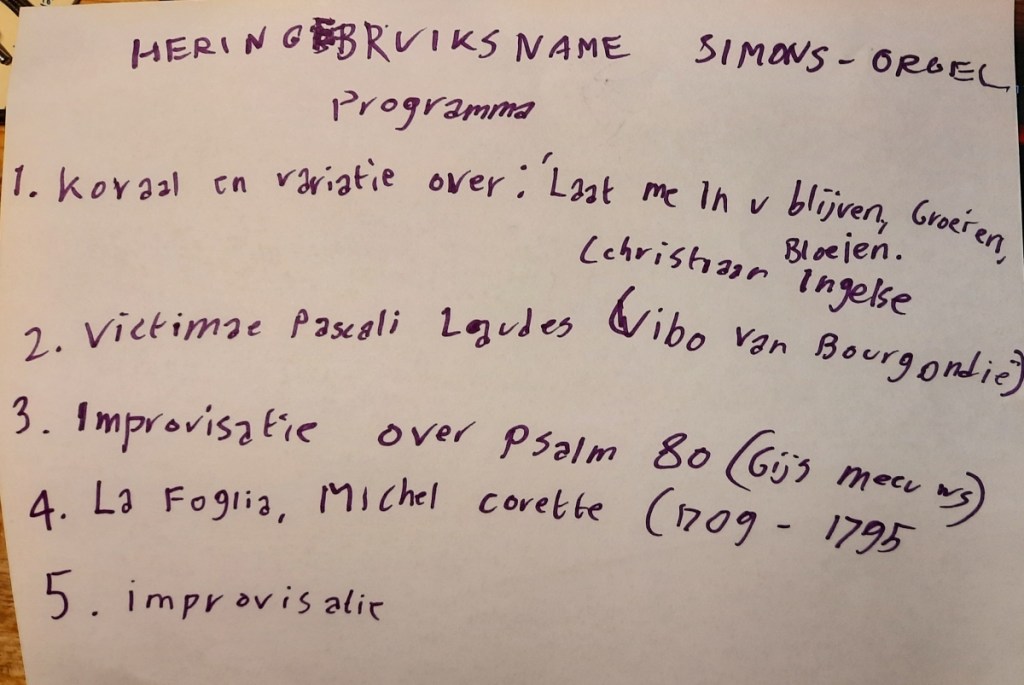 HERINGEBRUIKSNAME SIMONS - ORGEL
Programma
1. Koraal en variatie over: 'Laat me In u blijven, Groeien,
Bloeien.
(Christiaan Ingelse
2. Victimae Pascali Laudes (Wibo van Bourgondië)
3. Improvisatie over psalm 80 (Gijs meeuws)
4. La Foglia, Michel corette (1709 - 1795
5. improvisatie